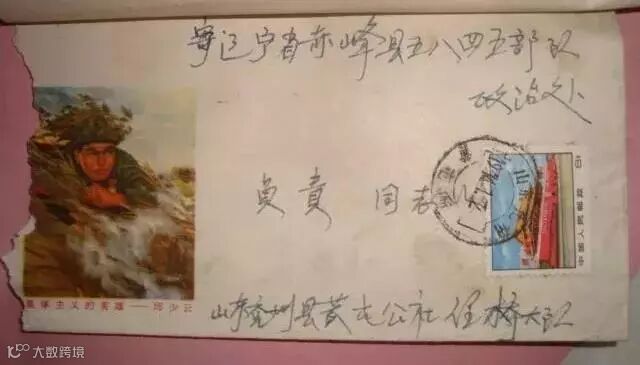 辽宁省赤峰县五八四五部队
政治处
负责 同志
集体主义的英雄——邱少云
中国人民邮政
山东兖州县黄屯公社任桥大队
大数跨境